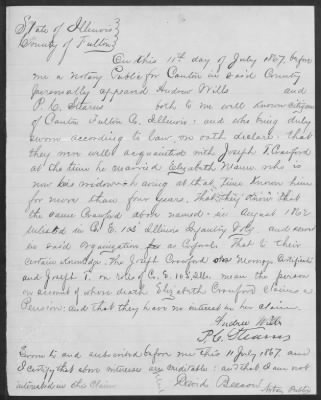 State of Illinois }
County of Fulton }
On this 11th day of July 1867, before
me a Notary Public for Canton in said County
personally appeared Andrew Wills and
P. C. Stearns both to me well known citizens
of Canton Fulton Co, Illinois: and who being duly
sworn according to law, on oath declare: that
they were well acquainted with Joseph T Crawford
at the time he married Elizabeth who is
now his widow having at that time known him
for more than four years. That they know that
the same Crawford above named in August 1862
enlisted in Co. E. 103 Illinois Infantry Vols. and served
in said Organization as Corporal. That to their
certain knowledge. The Joseph Crawford of Marriage Certificate
and Joseph T. on rolls of Co. E. 103 Ills. mean the person
on account of whose death Elizabeth Crawford claims a
Pension: and that they have no interest in her claim.
Andrew Wills
P. C. Stearns
Sworn to and subscribed before me this 11 July 1867. and
I certify that above witnesses are creditable: and that I am not
interested in this Claim
David Beeson
Notary Public